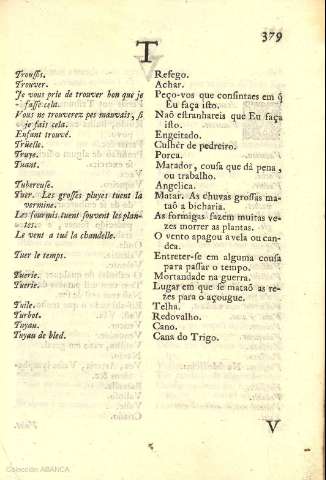 379
T
Trousses. Refego.
Trouver. Achar.
Je vous prie de trouver bon que je Peço-vos que consintaes em q̃
fasse cela. Eu faça isto.
Vous ne trouverez pes mauvais, si Naõ estranhareis que Eu faça
je fais cela. isto.
Enfant trouvé. Engeitado.
Trüelle. Culhèr de pedreiro.
Truye. Porca.
Tuant. Matador, cousa que dá pena,
ou trabalho.
Tubereuse. Angelica.
Tuer. Les grosses pluyes tuent la Matar. As chuvas grossas ma-
vermine. taõ a bicharia.
Les fourmis tuent souvent les plan- As formigas fazem muitas ve-
tes. zes morrer as plantas.
Le vent a tué la chandelle. O vento apagou a vela ou can-
dea.
Tuer le temps. Entreter-se em alguma cousa
para passar o tempo.
Tuerie. Mortandade na guerra.
Tuerie. Lugar em que se mataõ as re-
zes para o açougue.
Tuile. Telha.
Turbot. Redovalho.
Tuyau. Cano.
Tuyau de bled. Cana do Trigo.
V
Colección ABANCA